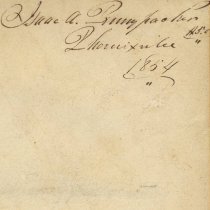 Isaac A. Pennypacker
Phoenixville
1854
"